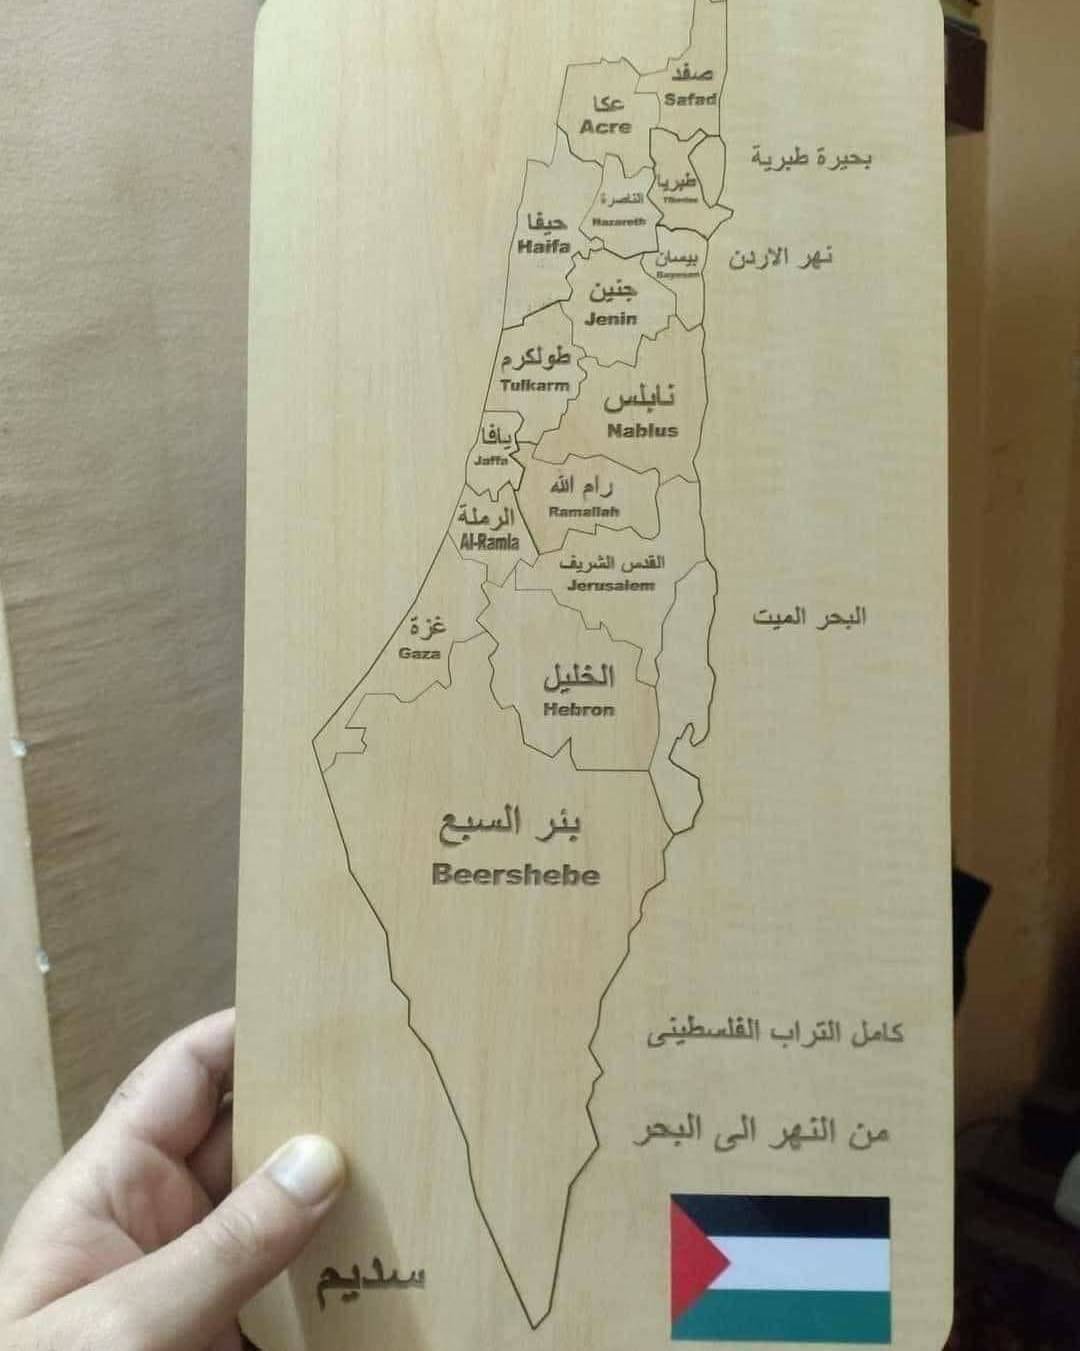 صفد
Safad
عكا
Acre
بحيرة طبرية
طبريا
Tiberias
الناصرة
Nazareth
حيفا
Haifa
نهر الاردن
بيسان
Bayesan
جنين
Jenin
طولكرم
Tulkarm
نابلس
Nablus
يافا
Jaffa
رام الله
Ramallah
الرملة
Al-Ramla
القدس الشريف
Jerusalem
البحر الميت
غزة
Gaza
الخليل
Hebron
بئر السبع
Beershebe
كامل التراب الفلسطيني
من النهر الى البحر
سديم